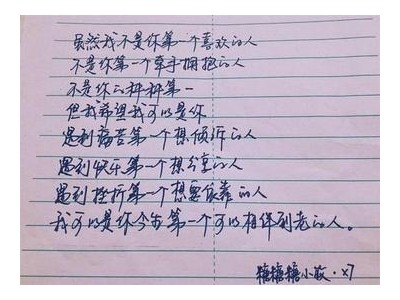 虽然我不是你第一个喜欢的人
不是你第一个牵手拥抱的人
不是你的种种第一
但我希望我可以是你
遇到痛苦第一个想倾诉的人
遇到快乐第一个想分享的人
遇到挫折第一个想要依靠的人
我可以是你今生第一个可以相伴到老的人。
糖糖糖小故·x7